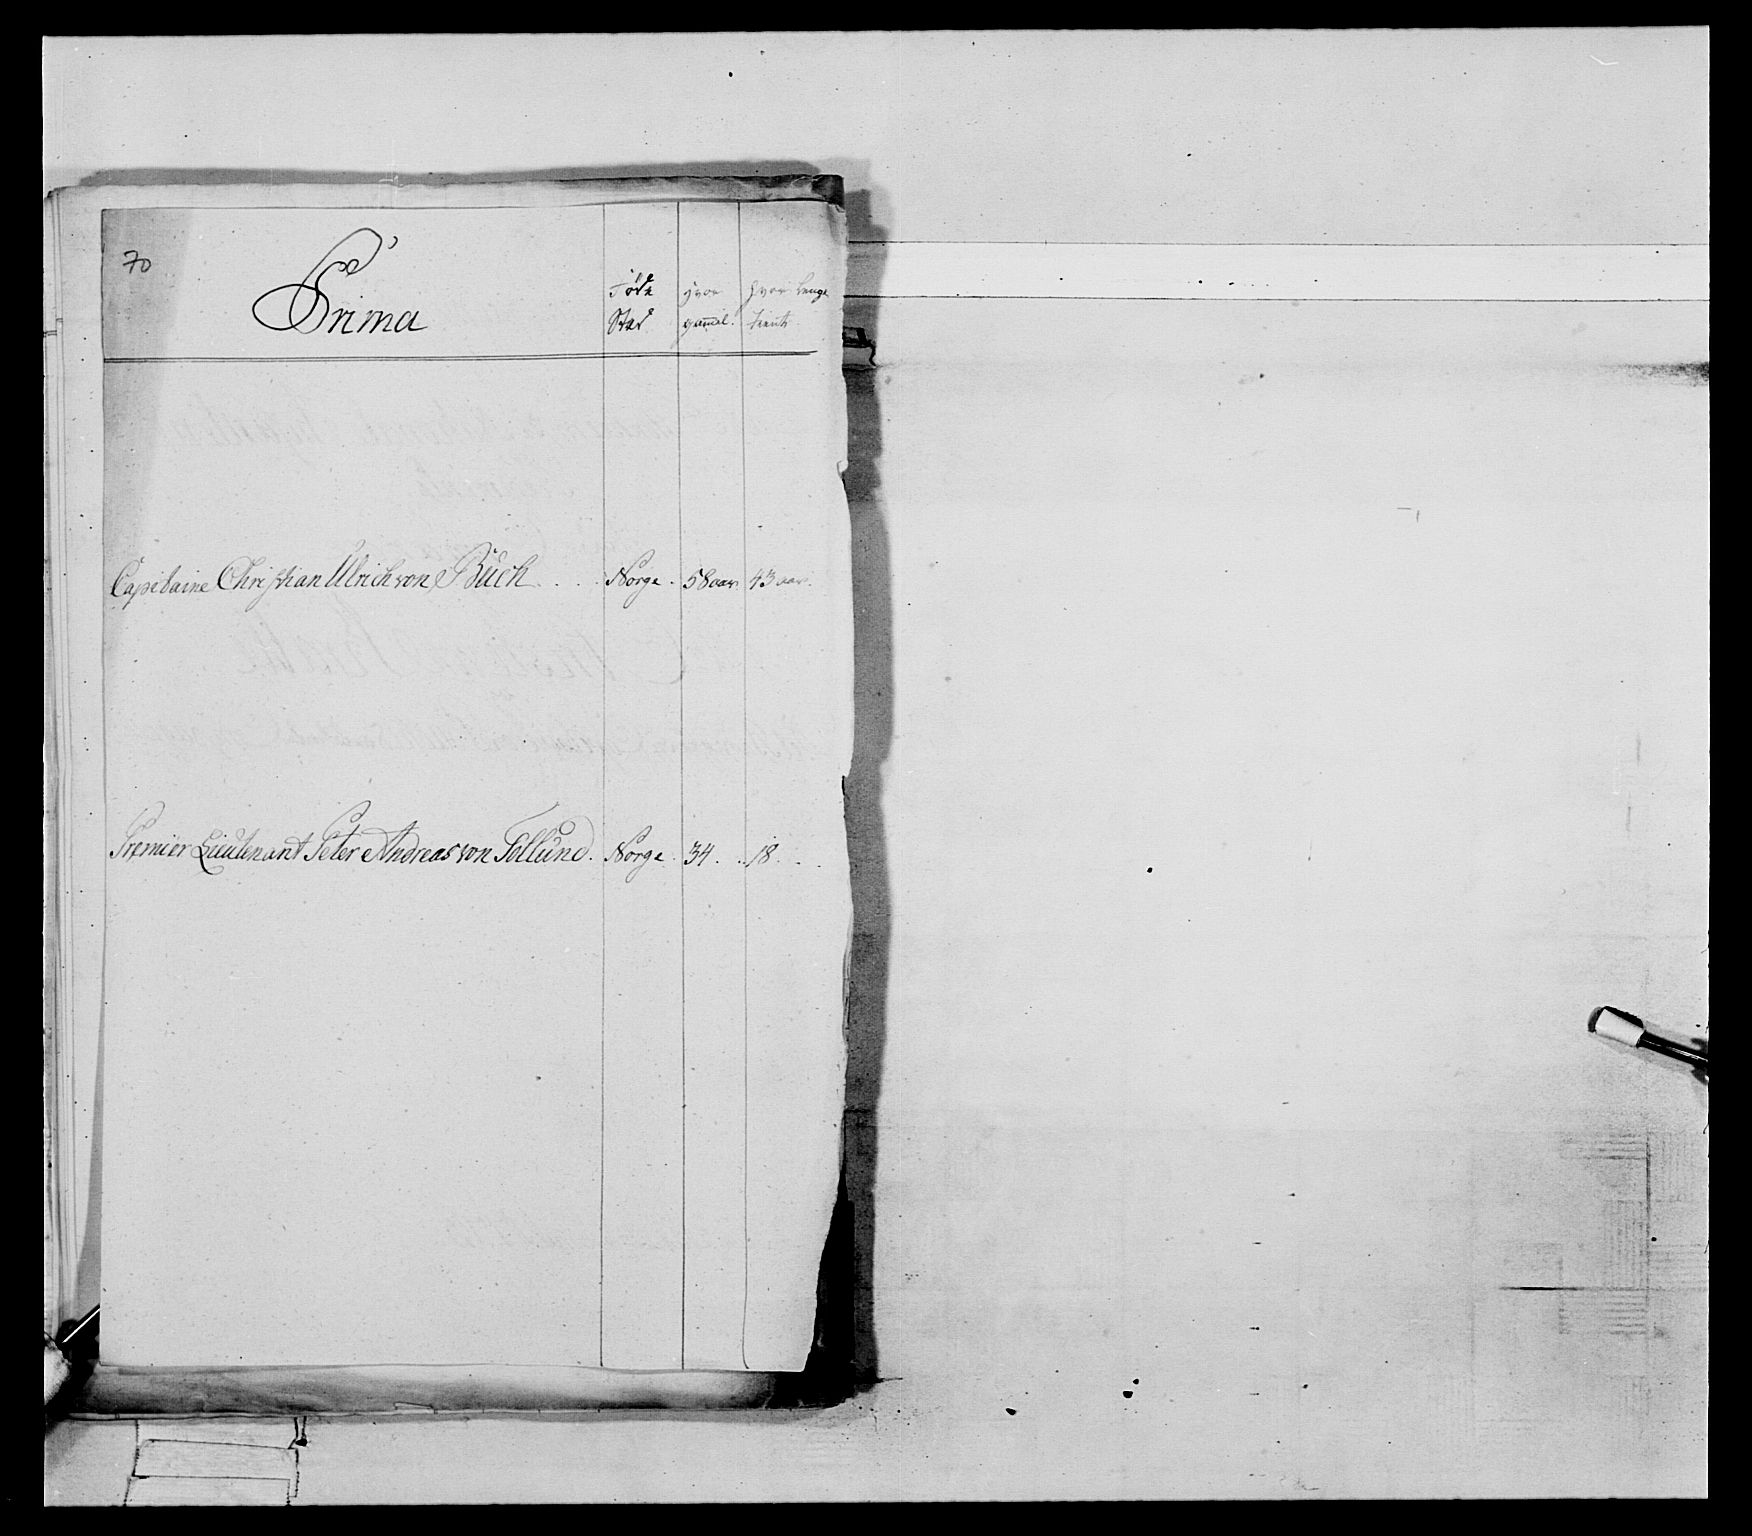 70
Prima
Föde Hvor Hvor lenge
Stæd gammel. tient
Capitaine Christian Ulrich von Büch . . . Norge . 58 aar. 43 aar.
Premier Lieutenant Peter Andreas von Tollund. Norge. 34 . . . 18 . . .